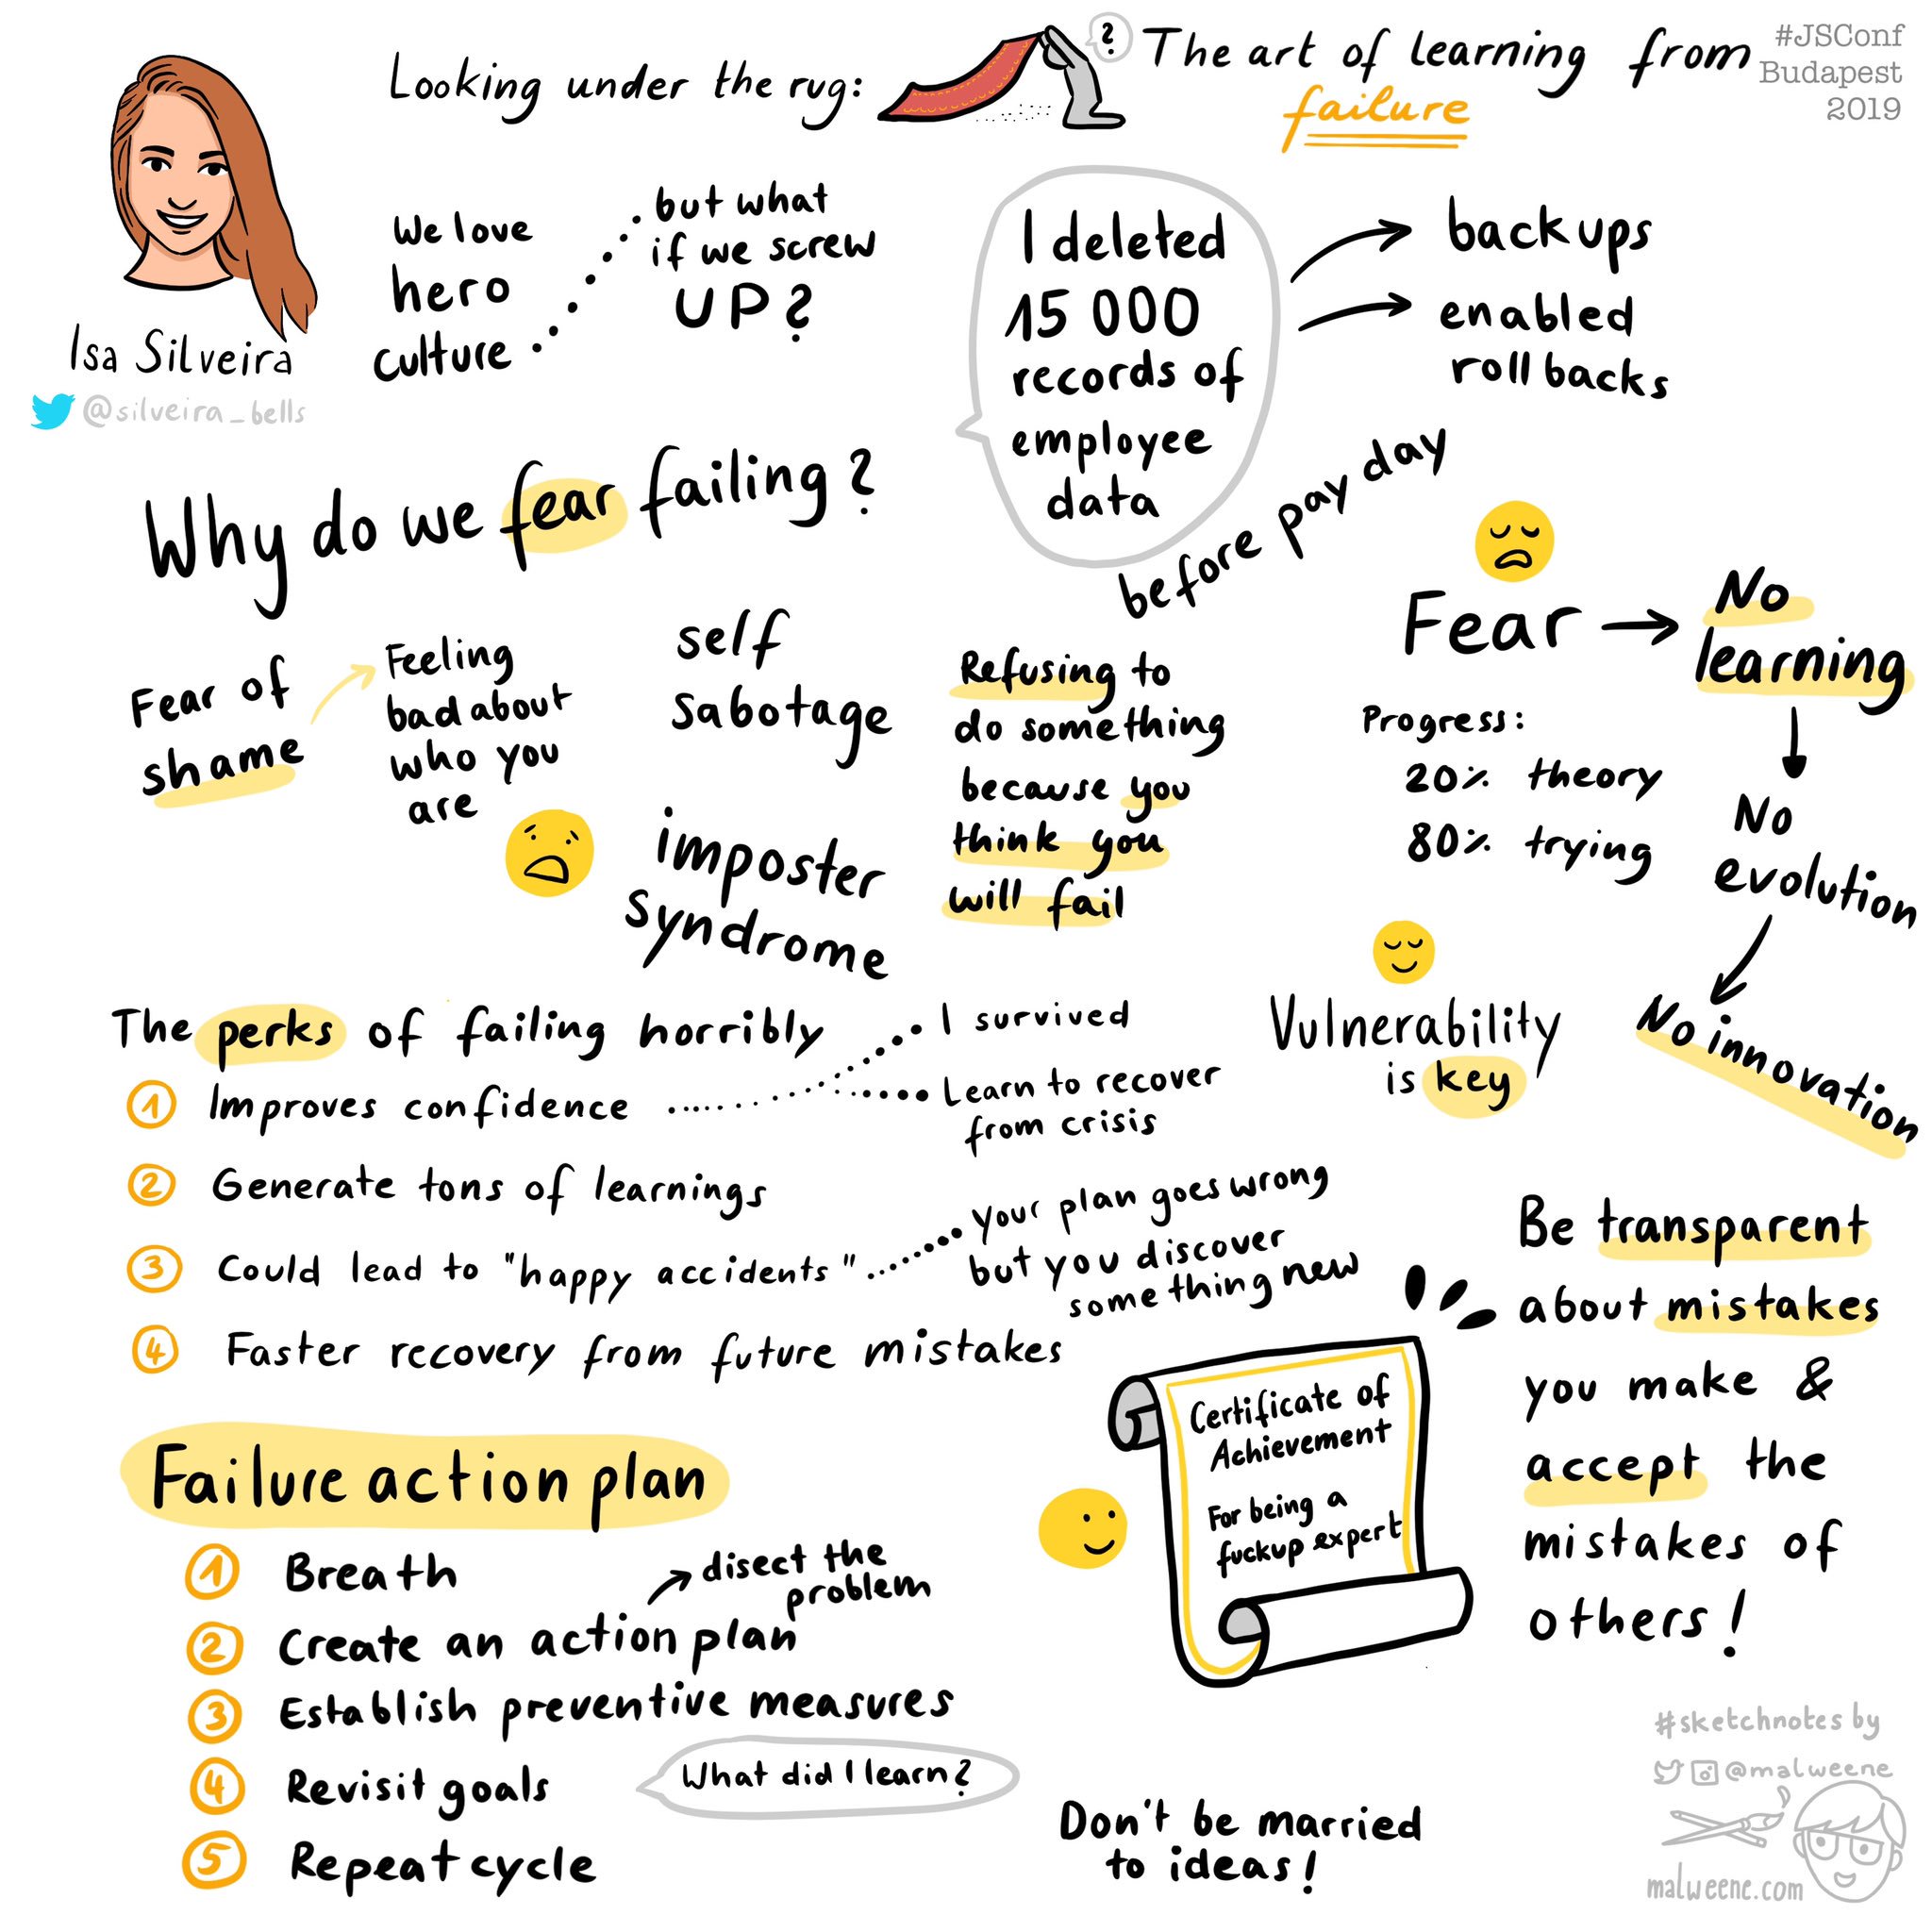 Looking under the rug:
?
The art of learning from
failure
#JSConf
Budapest
2019
Isa Silveira
@silveira_bells
We love
hero
culture
but what
if we screw
UP?
I deleted
15 000
records of
employee
data
before pay day
backups
enabled
roll backs
Why do we fear failing?
Fear of
shame
Feeling
bad about
who you
are
self
sabotage
imposter
syndrome
Refusing to
do something
because you
think you
will fail
Fear
No
learning
No
evolution
No innovation
Progress:
20% theory
80% trying
Vulnerability
is key
The perks of failing horribly
1 Improves confidence
I survived
Learn to recover
from crisis
2 Generate tons of learnings
3 Could lead to "happy accidents"
your plan goes wrong
but you discover
something new
4 Faster recovery from future mistakes
Be transparent
about mistakes
you make &
accept the
mistakes of
others!
Certificate of
Achievement
For being a
fuckup expert
Failure action plan
1 Breath
2 Create an action plan
disect the
problem
3 Establish preventive measures
4 Revisit goals
What did I learn?
5 Repeat cycle
Don't be married
to ideas!
#sketchnotes by
@malweene
malweene.com